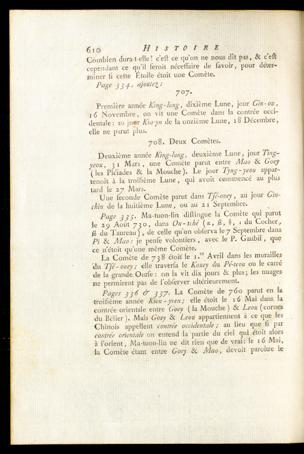 610 HISTOIRE
Combien dura-t-elle? c'est ce qu'on ne nous dit pas, & c'est
cependant ce qu'il seroit nécessaire de savoir, pour déter-
miner si cette Étoile étoit une Comète.
Page 334, ajoutez:
707.
Première année King-lung, dixième Lune, jour Gin-ou,
16 Novembre, on vit une Comète dans la contrée occi-
dentale: au jour de la onzième Lune, 18 Décembre,
elle ne parut plus.
708. Deux Comètes.
Deuxième année King-lung, deuxième Lune, jour Ting-
yeou, 31 Mars, une Comète parut entre Mao & Goey
(les Pléiades & la Mouche). Le jour Ting-yeou appar-
tenoit à la troisième Lune, qui avoit commencé au plus
tard le 27 Mars.
Une seconde Comète parut dans Tsé-ouey, au jour
de la huitième Lune, ou au 21 Septembre.
Page 335. Ma-tuon-lin distingue la Comète qui parut
le 29 Août 730, dans Ou-tché (α, β, du Cocher,
β du Taureau), de celle qu'on observa le 7 Septembre dans
Pi & Mao: je pense volontiers, avec le P. Gaubil, que
ce n'étoit qu'une même Comète.
La Comète de 738 étoit le 1.er Avril dans les murailles
du Tsé-ouey; elle traversa le Kouey du Pé-teou ou le carré
de la grande Ourse: on la vit dix jours & plus; les nuages
ne permirent pas de l'observer ultérieurement.
Pages 336 & 337. La Comète de 760 parut en la
troisième année Kien-yuen; elle étoit le 16 Mai dans la
contrée orientale entre Goey (la Mouche) & Leou (cornes
du Bélier). Mais Goey & Leou appartiennent à ce que les
Chinois appellent contrée occidentale; au lieu que si par
contrée orientale on entend la partie du ciel qui étoit alors
à l'orient, Ma-tuon-lin ne dit rien que de vrai: le 16 Mai,
la Comète étant entre Goey & Mao, devoit paroître le